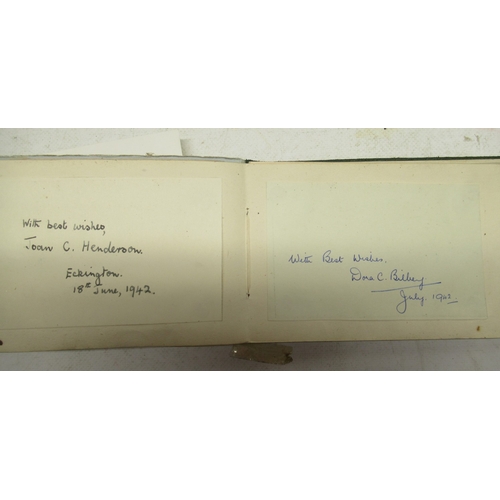 With best wishes,
Joan C. Henderson.
Eckington.
18th June, 1942.
With Best Wishes.
C.
July.